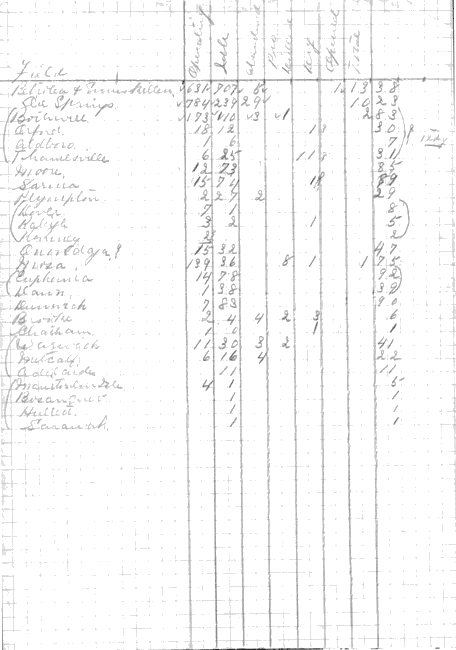 Field Operating Idle Abandoned Dry Total
Petrolea & Enniskillen 631 707 1338
Oil Springs 784 239 29 1023
Bothwell 173 110 3 1 283
Orford 18 12 30
Aldboro 1 6 7
Thamesville 6 25 31
Moore 12 73 85
Sarnia 15 74 89
Plympton 2 27 2 29
Dover 7 1 8
Raleigh 3 2 1 5
Romney 2 2
Onondaga 15 32 47
Mosa 139 36 8 1 175
Euphemia 14 78 92
Dawn 1 38 39
Dunwich 7 83 90
Brooke 2 4 4 2 3 6
Chatham 1 0 1 1
Warwick 11 30 3 2 41
Metcalf 6 16 4 22
Adelaide 11 11
4 1 5
Bosanquet 1 1
Hullett 1 1
Sarawak 1 1